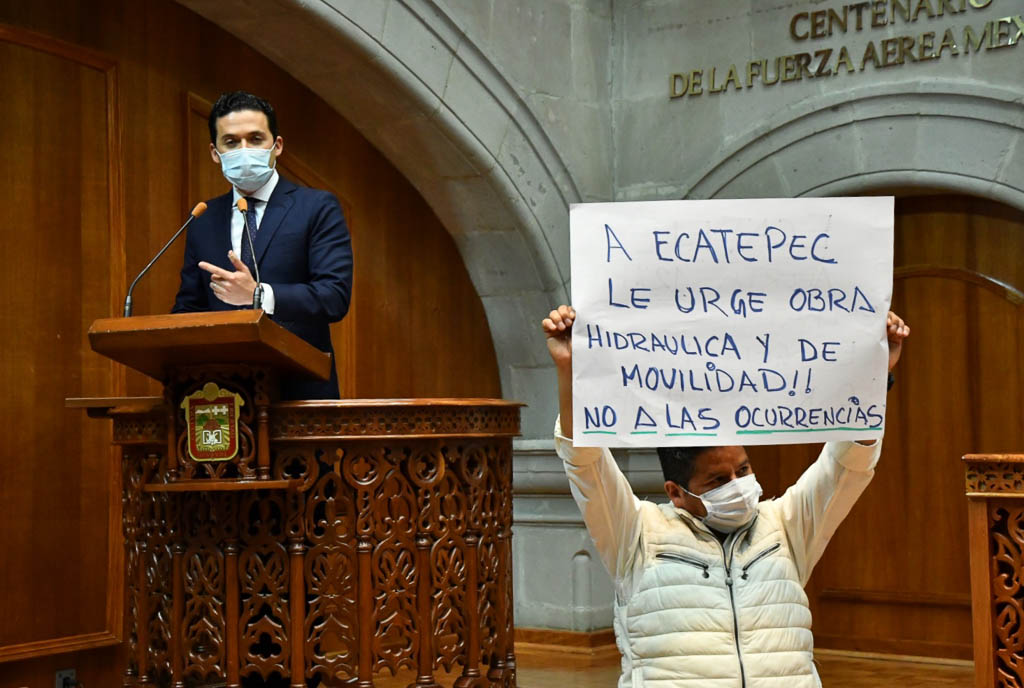 CENTENARIO
DE LA FUERZA AEREA MEX
A ECATEPEC
LE URGE OBRA
HIDRAULICA Y DE
MOVILIDAD!!
NO A LAS OCURRENCIAS